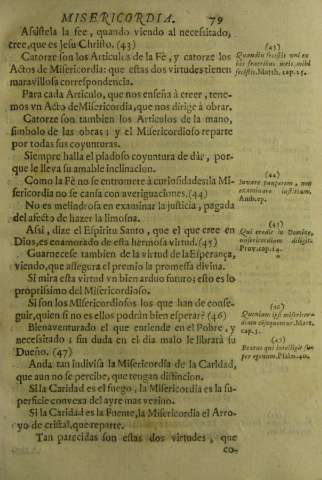 MISERICORDIA. 79
Asistela la fee, quando viendo al necesitado,
cree, que es Jesu Christo. (43)
Catorze son los Articulos de la Fè, y catorze los
Actos de Misericordia: que estas dos virtudes tienen
maravillosa correspondencia.
Para cada Articulo, que nos enseña à creer, tene-
mos vn Acto de Misericordia, que nos dirige à obrar.
Catorze son tambien los Articulos de la mano,
simbolo de las obras; y el Misericordioso reparte
por todas sus coyunturas.
Siempre halla el piadoso coyuntura de dàr, por-
que le lleva su amable inclinacion.
Como la Fè no se entromete à curiosidades: la Mi-
sericordia no se cansa con averiguaciones. (44)
No es melindrosa en examinar la justicia, pagada
del afecto de hazer la limosna.
Assi, dize el Espiritu Santo, que el que cree en
Dios, es enamorado de esta hermosa virtud. (45)
Guarnecese tambien de la virtud de la Esperança,
viendo, que assegura el premio la promessa divina.
Si mira esta virtud vn bien arduo futuro; esto es lo
propriissimo del Misericordioso.
Si son los Misericordiosos los que han de conse-
guir, quien si no es ellos podràn bien esperar? (46)
Bienaventurado el que entiende en el Pobre, y
necessitado; sin duda en el dia malo le librarà su
Dueño. (47)
Anda tan indivisa la Misericordia de la Caridad,
que aun no se percibe, que tengan distincion.
Si la Caridad es el fuego, la Misericordia es la su-
perficie convexa del ayre mas vezino.
Si la Caridad es la Fuente, la Misericordia el Arro-
yo de cristal, que reparte.
Tan parecidas son estas dos virtudes, que
co-
(43)
Quandiu fecistis uni ex
his fratribus meis, mihi
fecistis. Matth. cap. 25.
(44)
Iuvare pauperem, non
examinare iustitiam.
Amb. ep.
(45)
Qui credit in Domino,
misericordiam diligit.
Prov. cap. 14.
(46)
Quoniam ipsi misericor-
diam consequentur. Matt.
cap. 5.
(47)
Beatus qui intelligit su-
per egenum. Psalm. 40.